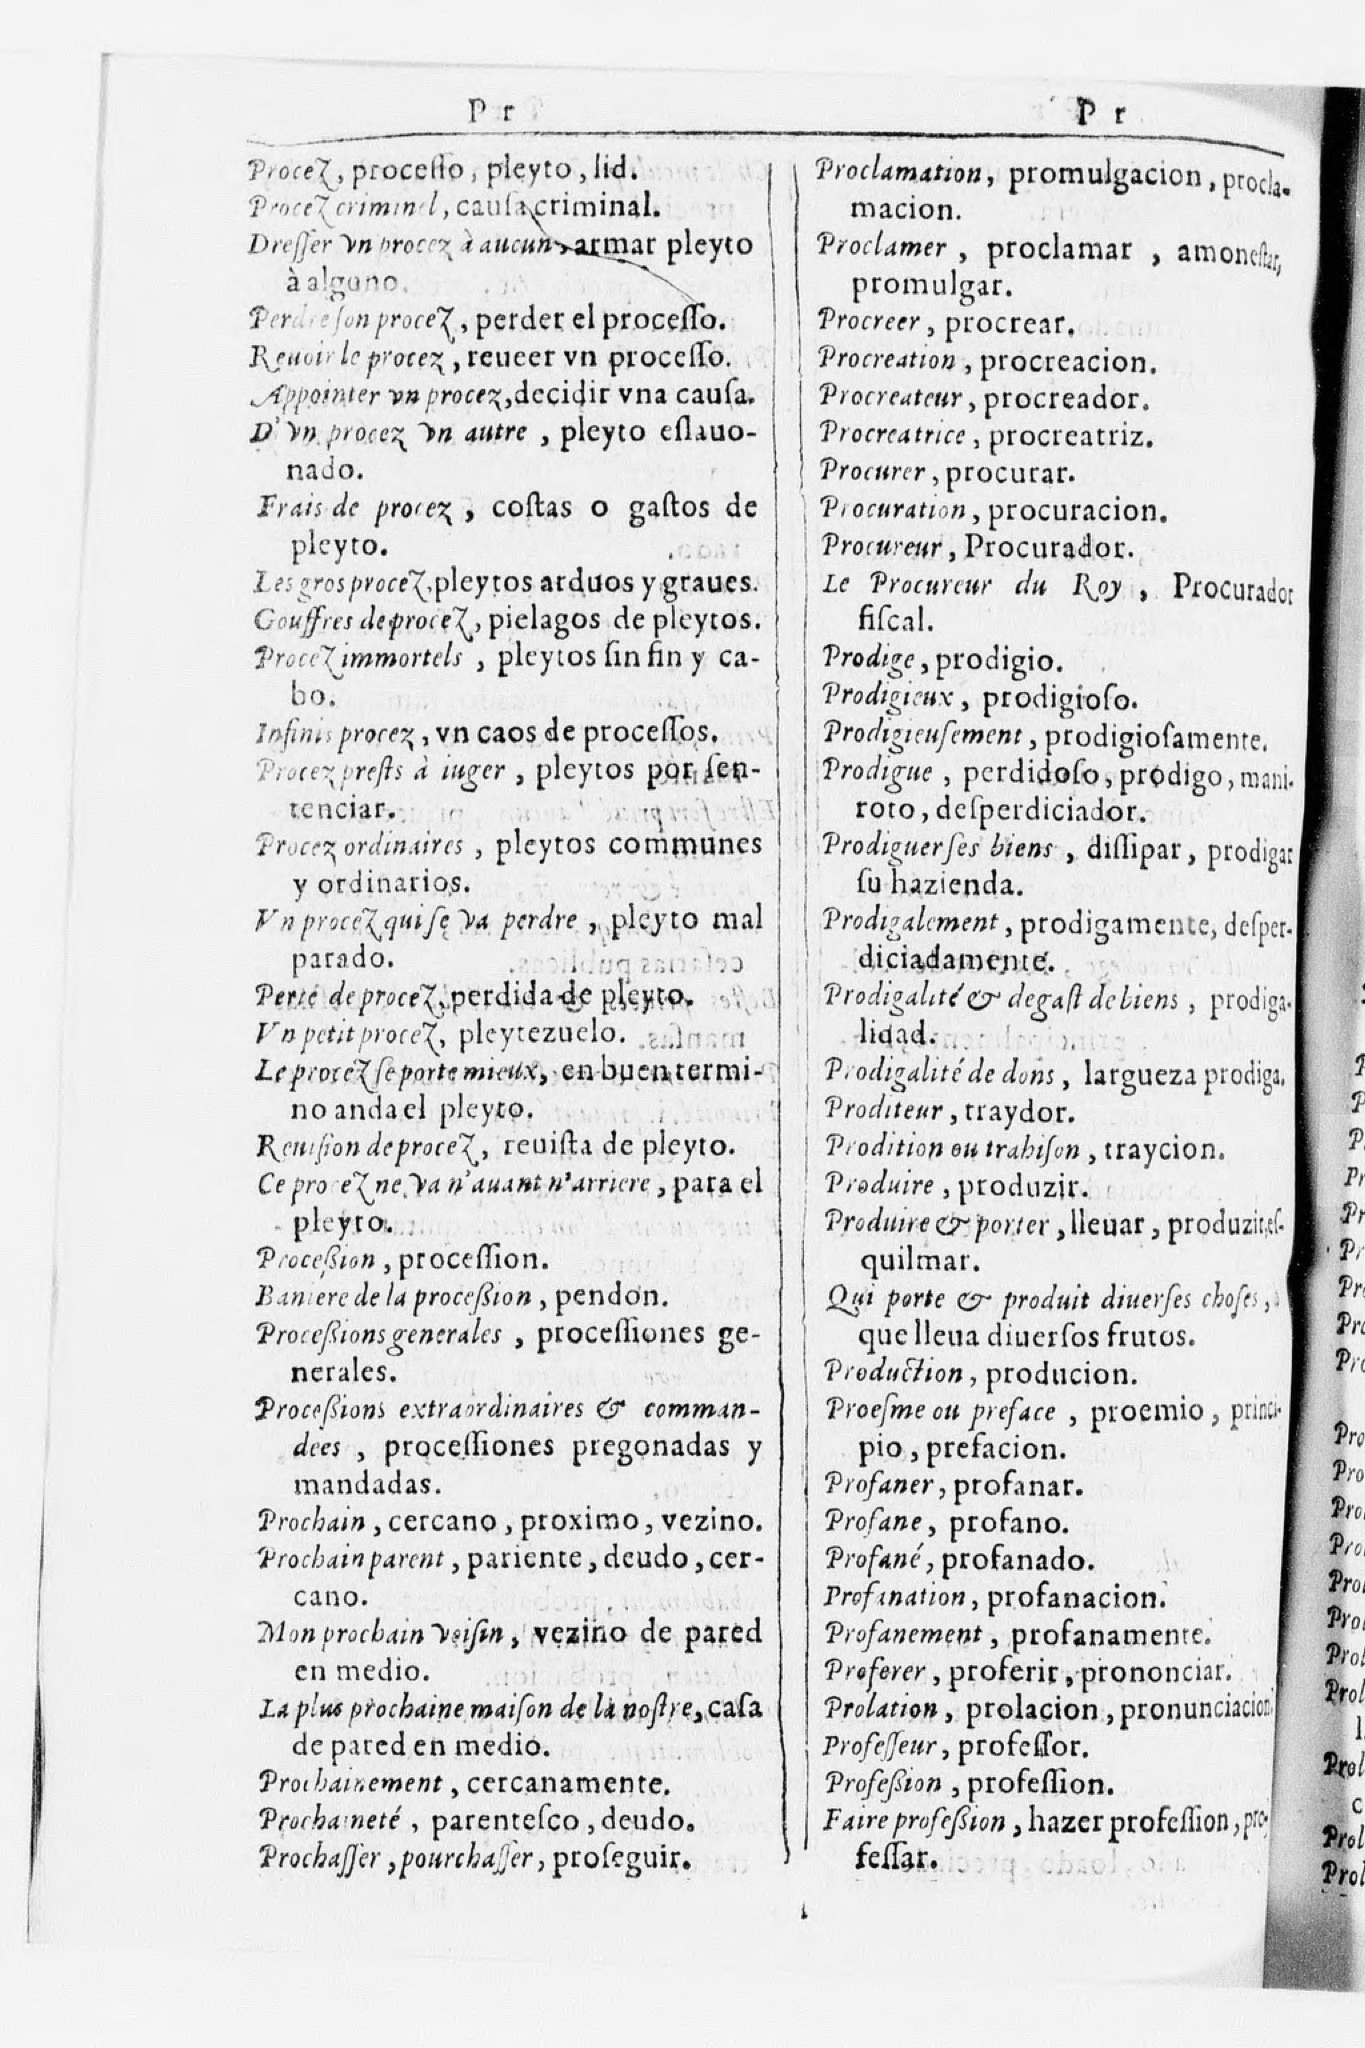 P r
Procez, processo, pleyto, lid.
Procez criminel, causa criminal.
Dresser vn procez à aucun, armar pleyto
à alguno.
Perdre son procez, perder el processo.
Reuoir le procez, reueer vn processo.
Appointer vn procez, decidir vna causa.
D'vn procez vn autre, pleyto eslauo-
nado.
Frais de procez, costas o gastos de
pleyto.
Les gros procez, pleytos arduos y graues.
Gouffres de procez, pielagos de pleytos.
Procez immortels, pleytos sin fin y ca-
bo.
Infinis procez, vn caos de processos.
Procez prests à iuger, pleytos por sen-
tenciar.
Procez ordinaires, pleytos communes
y ordinarios.
Vn procez qui se va perdre, pleyto mal
parado.
Perte de procez, perdida de pleyto.
Vn petit procez, pleytezuelo.
Le procez se porte mieux, en buen termi-
no anda el pleyto.
Reuision de procez, reuista de pleyto.
Ce procez ne va n'auant n'arriere, para el
pleyto.
Proceßion, procession.
Baniere de la proceßion, pendon.
Proceßions generales, processiones ge-
nerales.
Proceßions extraordinaires & comman-
dees, processiones pregonadas y
mandadas.
Prochain, cercano, proximo, vezino.
Prochain parent, pariente, deudo, cer-
cano.
Mon prochain voisin, vezino de pared
en medio.
La plus prochaine maison de la nostre, casa
de pared en medio.
Prochainement, cercanamente.
Prochaineté, parentesco, deudo.
Prochasser, pourchasser, proseguir.
P r
Proclamation, promulgacion, procla-
macion.
Proclamer, proclamar, amonestar,
promulgar.
Procreer, procrear.
Procreation, procreacion.
Procreateur, procreador.
Procreatrice, procreatriz.
Procurer, procurar.
Procuration, procuracion.
Procureur, Procurador.
Le Procureur du Roy, Procurador
fiscal.
Prodige, prodigio.
Prodigieux, prodigioso.
Prodigieusement, prodigiosamente.
Prodigue, perdidoso, prodigo, mani-
roto, desperdiciador.
Prodiguer ses biens, dissipar, prodigar
su hazienda.
Prodigalement, prodigamente, desper-
diciadamente.
Prodigalité & degast de biens, prodiga-
lidad.
Prodigalité de dons, largueza prodiga.
Proditeur, traydor.
Prodition ou trahison, traycion.
Produire, produzir.
Produire & porter, lleuar, produzir, es-
quilmar.
Qui porte & produit diuerses choses,
que lleua diuersos frutos.
Production, producion.
Proesme ou preface, proemio, princi-
pio, prefacion.
Profaner, profanar.
Profane, profano.
Profané, profanado.
Profanation, profanacion.
Profanement, profanamente.
Proferer, proferir, prononciar.
Prolation, prolacion, pronunciacion.
Professeur, professor.
Profeßion, profession.
Faire profeßion, hazer profession, pro-
fessar.